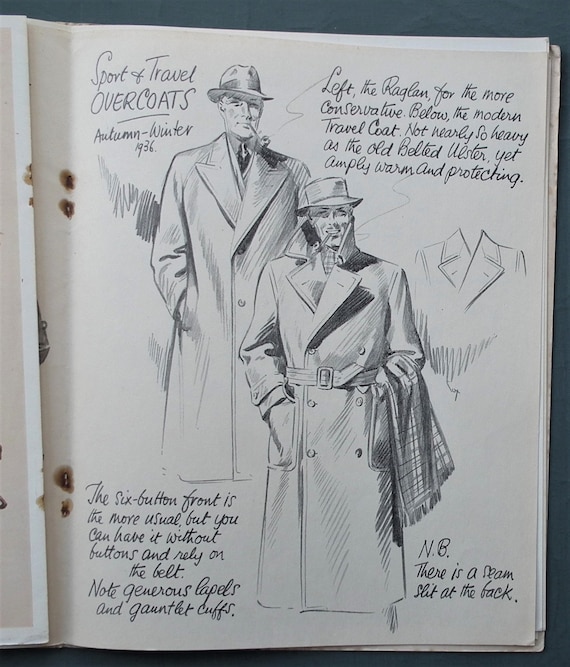 Sport & Travel
OVERCOATS
Autumn-Winter
1936.
Left, the Raglan, for the more
Conservative. Below, the modern
Travel Coat. Not nearly so heavy
as the old Belted Ulster, yet
amply warm and protecting.
The six-button front is
the more usual, but you
can have it without
buttons and rely on
the belt.
Note generous lapels
and gauntlet cuffs.
N.B.
There is a seam
slit at the back.